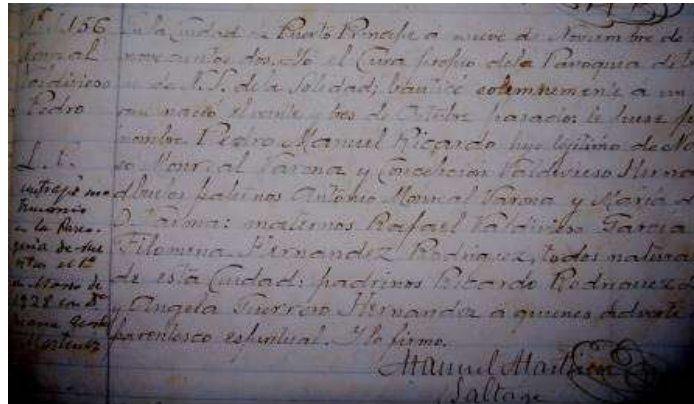 Nº 156
Monreal
Valdivieso
Pedro
L. C.
contrajo ma
trimonio
en la Parro-
quia de
en el 1º
de Marzo de
1928 con Dª
Martinez
En la Ciudad de Puerto Principe a nueve de Noviembre de
novecientos dos. Yo el Cura propio de la Parroquia de
de N. S. de la Soledad; bauticé solemnemente á un
que nació el veinte y tres de Octubre pasado: le puse por
nombre Pedro Manuel Ricardo hijo legitimo de
Monreal Varona y Concepción Valdivieso Herna
abuelos paternos Antonio Monreal Varona y Maria
maternos Rafael Valdivieso Garcia
Filomena Hernandez Rodriguez, todos natura
de esta Ciudad: padrinos Ricardo Rodriguez
y Angela Guerrero Hernandez á quienes advertí
parentesco espiritual. Y lo firmo.
Manuel Martinez
Saltage